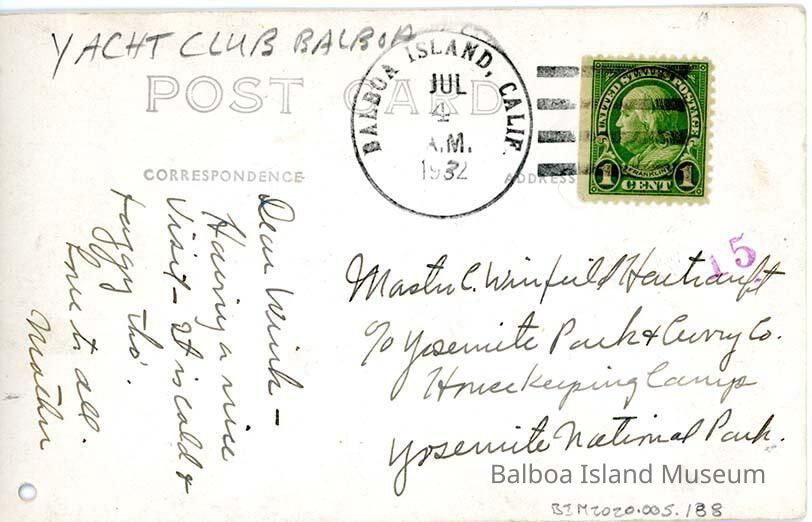 YACHT CLUB BALBOA
POST CARD
BALBOA ISLAND, CALIF.
JUL
4
A.M.
1932
UNITED STATES POSTAGE
FRANKLIN
1 CENT 1
CORRESPONDENCE
ADDRESS
Dear Wink -
Having a nice
visit - It is cold &
foggy tho'.
Love to all.
Mother
15
Master C. Winfield Hartranft
c/o Yosemite Park & Curry Co.
Housekeeping Camp
Yosemite National Park.
Balboa Island Museum
BIM2020.005.138